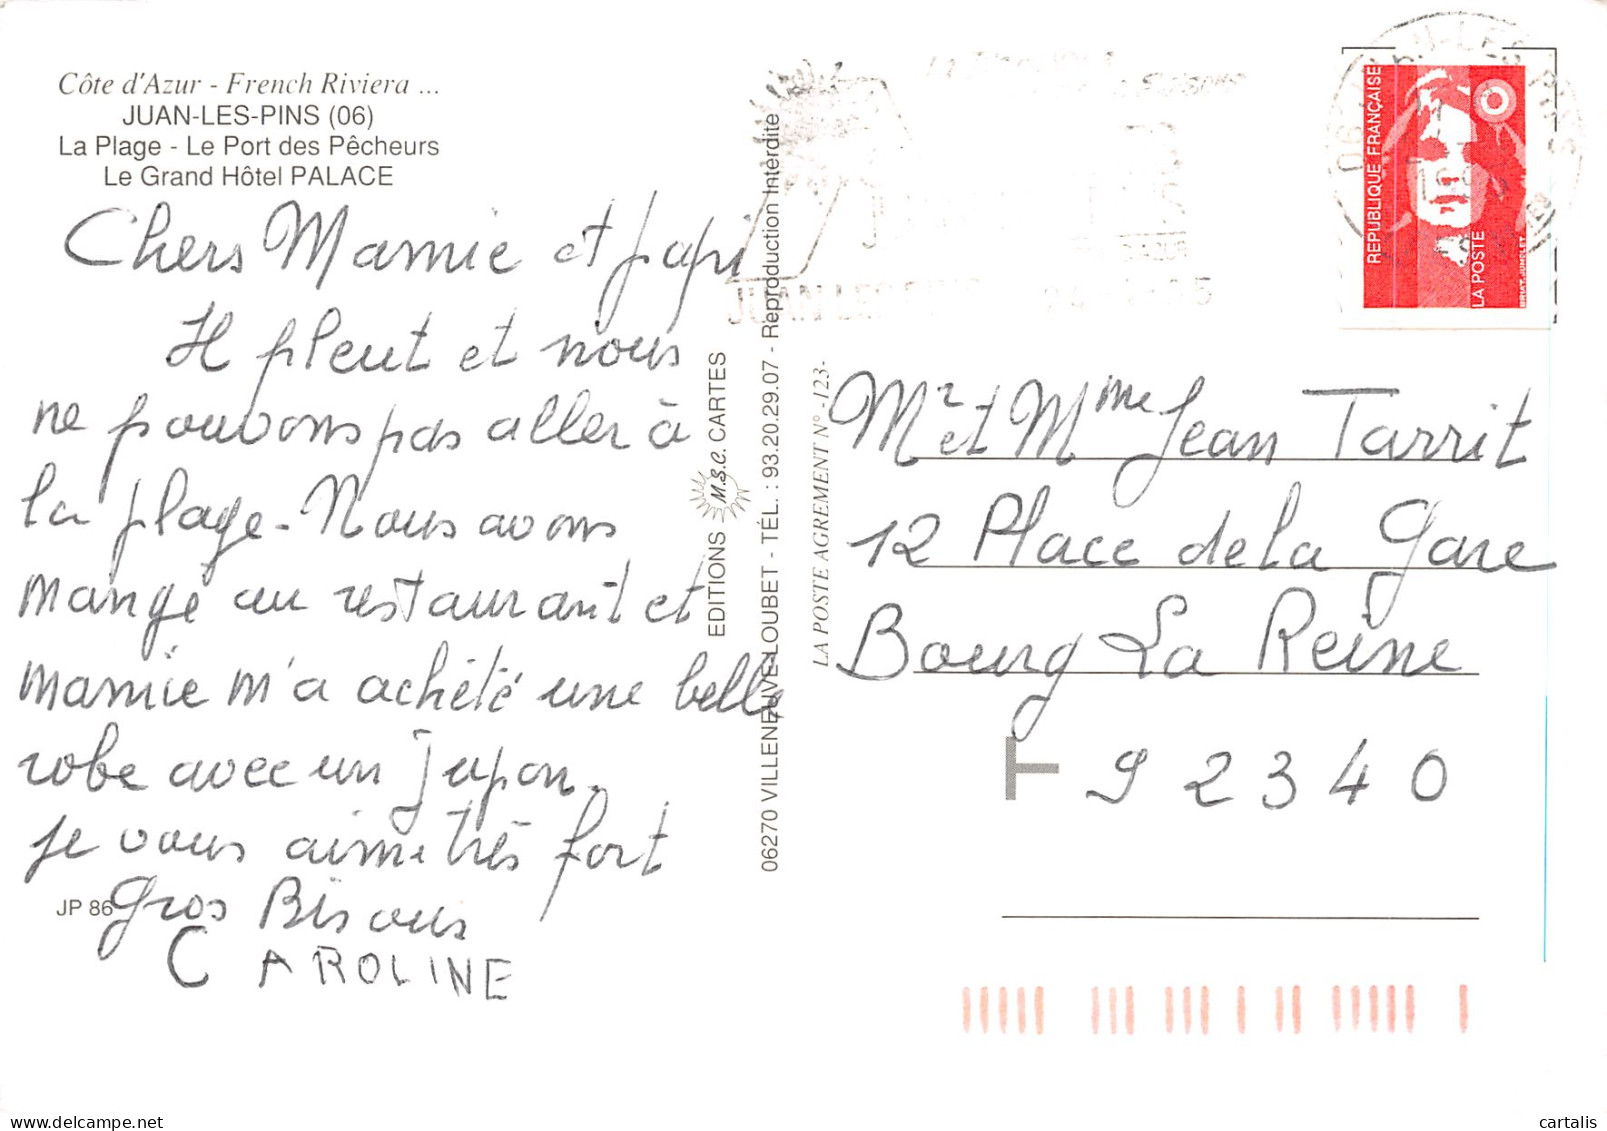 Côte d'Azur - French Riviera ...
JUAN-LES-PINS (06)
La Plage - Le Port des Pêcheurs
Le Grand Hôtel PALACE
Chers Mamie et papi
Il pleut et nous
ne pouvons pas aller à
la plage. Nous avons
mangé au restaurant et
mamie m'a achété une belle
robe avec un jupon.
je vous aime très fort
Gros Bisous
CAROLINE
JP 86
EDITIONS M.S.C. CARTES
06270 VILLENEUVE-LOUBET - TÉL. : 93.20.29.07 - Reproduction Interdite
LA POSTE AGREMENT N° -123-
JUAN LES PINS
RÉPUBLIQUE FRANÇAISE
LA POSTE
BRIAT-JUMELET
Mr et Mme Jean Tarrit
12 Place de la Gare
Bourg La Reine
T 92340
cartalis